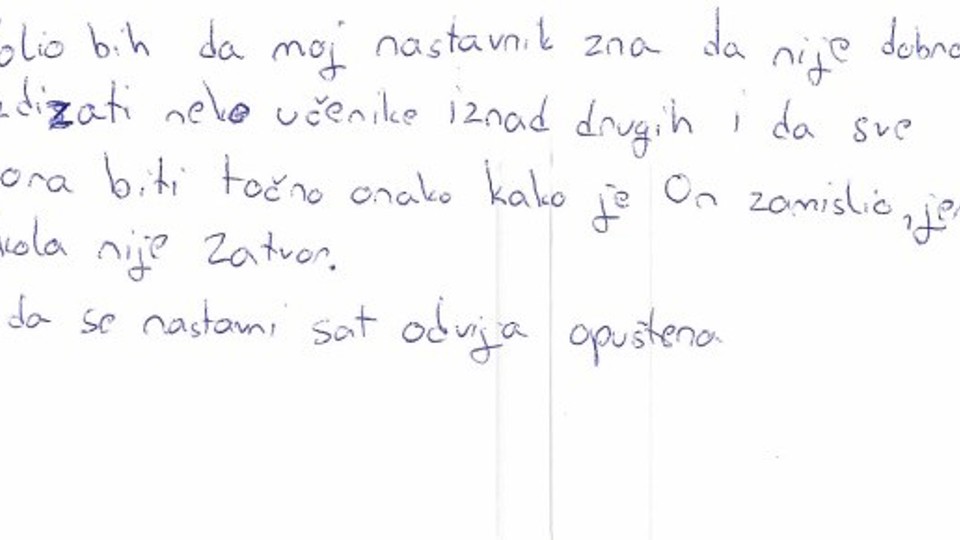 olio bih da moj nastavnik zna da nije dobro
dizati neke učenike iznad drugih i da sve
ora biti točno onako kako je On zamislio, jer
kola nije Zatvor.
da se nastavni sat odvija opušteno.